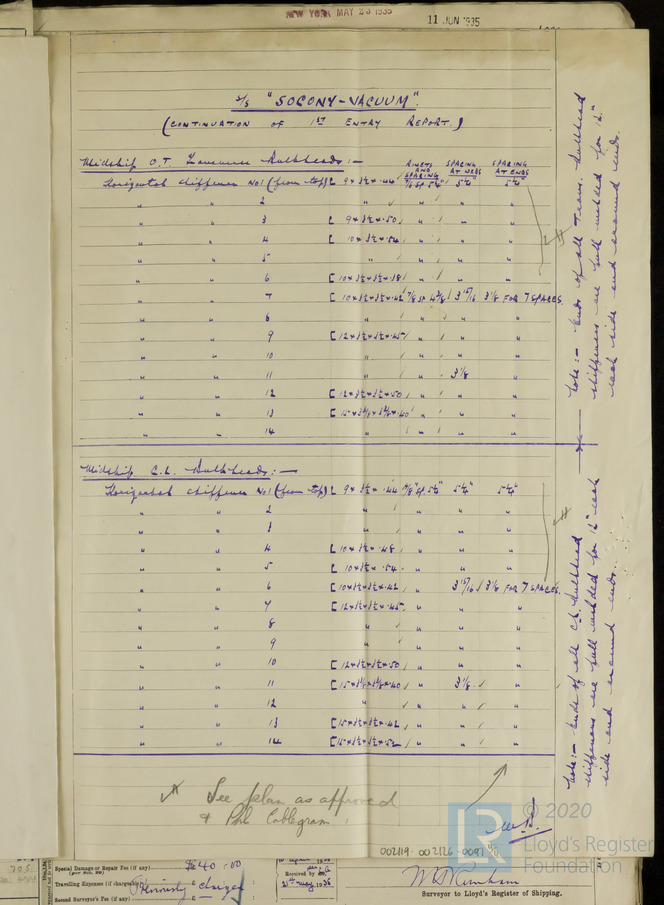 NEW YORK MAY 23 1935
11 JUN 1935
S/S "SOCONY-VACUUM".
(CONTINUATION OF 1ST ENTRY REPORT.)
Midship O.T. Transverse Bulkheads:-
RIVETS AND SPACING SPACING AT WEBS SPACING AT ENDS
Horizontal Stiffeners No1 (from top) L 9 × 3½ × .44 7/8 sp 5¼" 5¼" 5¼"
" " 2 " " " "
" " 3 L 9 × 3½ × .50 " " "
" " 4 L 10 × 3½ × .54 " " "
" " 5 " " " "
" " 6 [ 10 × 3½ × 3½ × .38 " " "
" " 7 [ 10 × 3½ × 3½ × .42 7/8 sp 4 3/8 3 15/16 3 1/8 FOR 7 SPACES.
" " 8 " " " "
" " 9 [ 12 × 3½ × 3½ × .45 " " "
" " 10 " " " "
" " 11 " " 3 1/8 "
" " 12 [ 12 × 3½ × 3½ × .50 " " "
" " 13 [ 15 × 3 3/8 × 3 3/8 × .40 " " "
" " 14 " " " "
Midship C.L. Bulkheads:-
Horizontal Stiffeners No1 (from top) L 9 × 3½ × .44 7/8" sp. 5¼" 5¼" 5¼"
" " 2 " " " "
" " 3 " " " "
" " 4 L 10 × 3½ × .48 " " "
" " 5 L 10 × 3½ × .54 " " "
" " 6 [ 10 × 3½ × 3½ × .42 " 3 15/16 3 1/8 FOR 7 SPACES.
" " 7 [ 12 × 3½ × 3½ × .45 " " "
" " 8 " " " "
" " 9 " " " "
" " 10 [ 12 × 3½ × 3½ × .50 " " "
" " 11 [ 15 × 3 3/8 × 3 3/8 × .40 " 3 1/8 "
" " 12 " " " "
" " 13 [ 15 × 3½ × 3½ × .42 " " "
" " 14 [ 15 × 3½ × 3½ × .52 " " "
Note:- Ends of all Trans. Bulkhead
stiffeners are full welded for 12"
each side and around ends.
Note:- Ends of all C.L. Bulkhead
stiffeners are full welded for 12" each
side and around ends.
See plan as approved
& Phil Cablegram
002119-002126-0091
© 2020
LR
Lloyd's Register
Foundation
Special Damage or Repair Fee (if any)
$40-00
Travelling Expenses (if chargeable)
Previously charged
Second Surveyor's Fee (if any)
Received by
Surveyor to Lloyd's Register of Shipping.